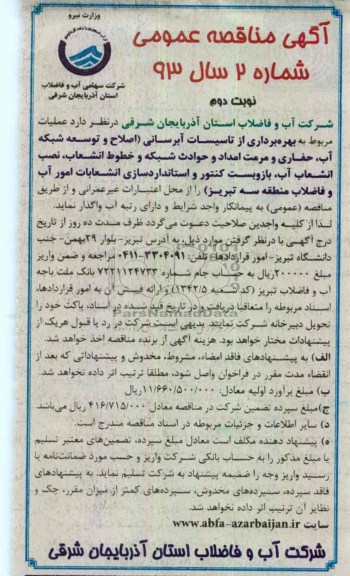 وزارت نیرو
شرکت سهامی آب و فاضلاب
استان آذربایجان شرقی
آگهی مناقصه عمومی
شماره ۲ سال ۹۳
نوبت دوم
شرکت آب و فاضلاب استان آذربایجان شرقی درنظر دارد عملیات
مربوط به بهره‌برداری از تاسیسات آبرسانی (اصلاح و توسعه شبکه
آب، حفاری و مرمت امداد و حوادث شبکه و خطوط انشعاب، نصب
انشعاب آب، بازوبست کنتور و استانداردسازی انشعابات امور آب
و فاضلاب منطقه سه تبریز) را از محل اعتبارات غیرعمرانی و از طریق
مناقصه (عمومی) به پیمانکار واجد شرایط و دارای رتبه آب واگذار نماید.
لذا از کلیه واجدین صلاحیت دعوت می‌گردد ظرف مدت ده روز از تاریخ
درج آگهی با درنظر گرفتن موارد ذیل به آدرس تبریز- بلوار ۲۹بهمن- جنب
دانشگاه تبریز- امور قراردادها- تلفن: ۳۳۰۴۰۹۱-۰۴۱۱ مراجعه و ضمن واریز
مبلغ ۲۰۰۰۰۰ریال به حساب جام شماره ۷۲۲۱۱۲۴۷۳۳ بانک ملت باجه
آب و فاضلاب تبریز (کد شعبه ۱۳۴۲/۵) و ارائه فیش آن به امور قراردادها،
اسناد مربوطه را متعاقبا دریافت و در تاریخ قید شده در اسناد، پاکت خود را
تحویل دبیرخانه شرکت نمایند. بدیهی است شرکت در رد یا قبول هریک از
پیشنهادات مختار خواهد بود. هزینه آگهی از برنده مناقصه اخذ خواهد شد.
الف) به پیشنهادهای فاقد امضاء، مشروط، مخدوش و پیشنهاداتی که بعد از
انقضاء مدت مقرر در فراخوان واصل شود، مطلقا ترتیب اثر داده نخواهد شد.
ب) مبلغ برآورد اولیه معادل: ۱۱/۶۶۰/۵۰۰/۰۰۰ریال.
ج)مبلغ سپرده تضمین شرکت در مناقصه معادل ۴۱۶/۷۱۵/۰۰۰ ریال می‌باشد.
د) سایر اطلاعات و جزئیات مربوطه در اسناد مناقصه مندرج است.
ه) پیشنهاد دهنده مکلف است معادل مبلغ سپرده، تضمین‌های معتبر تسلیم
یا مبلغ مذکور را به حساب بانکی شرکت واریز و حسب مورد ضمانت‌نامه یا
رسید واریز وجه را ضمیمه پیشنهاد به شرکت تسلیم نماید. به پیشنهادهای
فاقد سپرده، سپرده‌های مخدوش، سپرده‌های کمتر از میزان مقرر، چک و
نظایر آن ترتیب اثر داده نخواهد شد.
سایت www.abfa-azarbaijan.ir
شرکت آب و فاضلاب استان آذربایجان شرقی